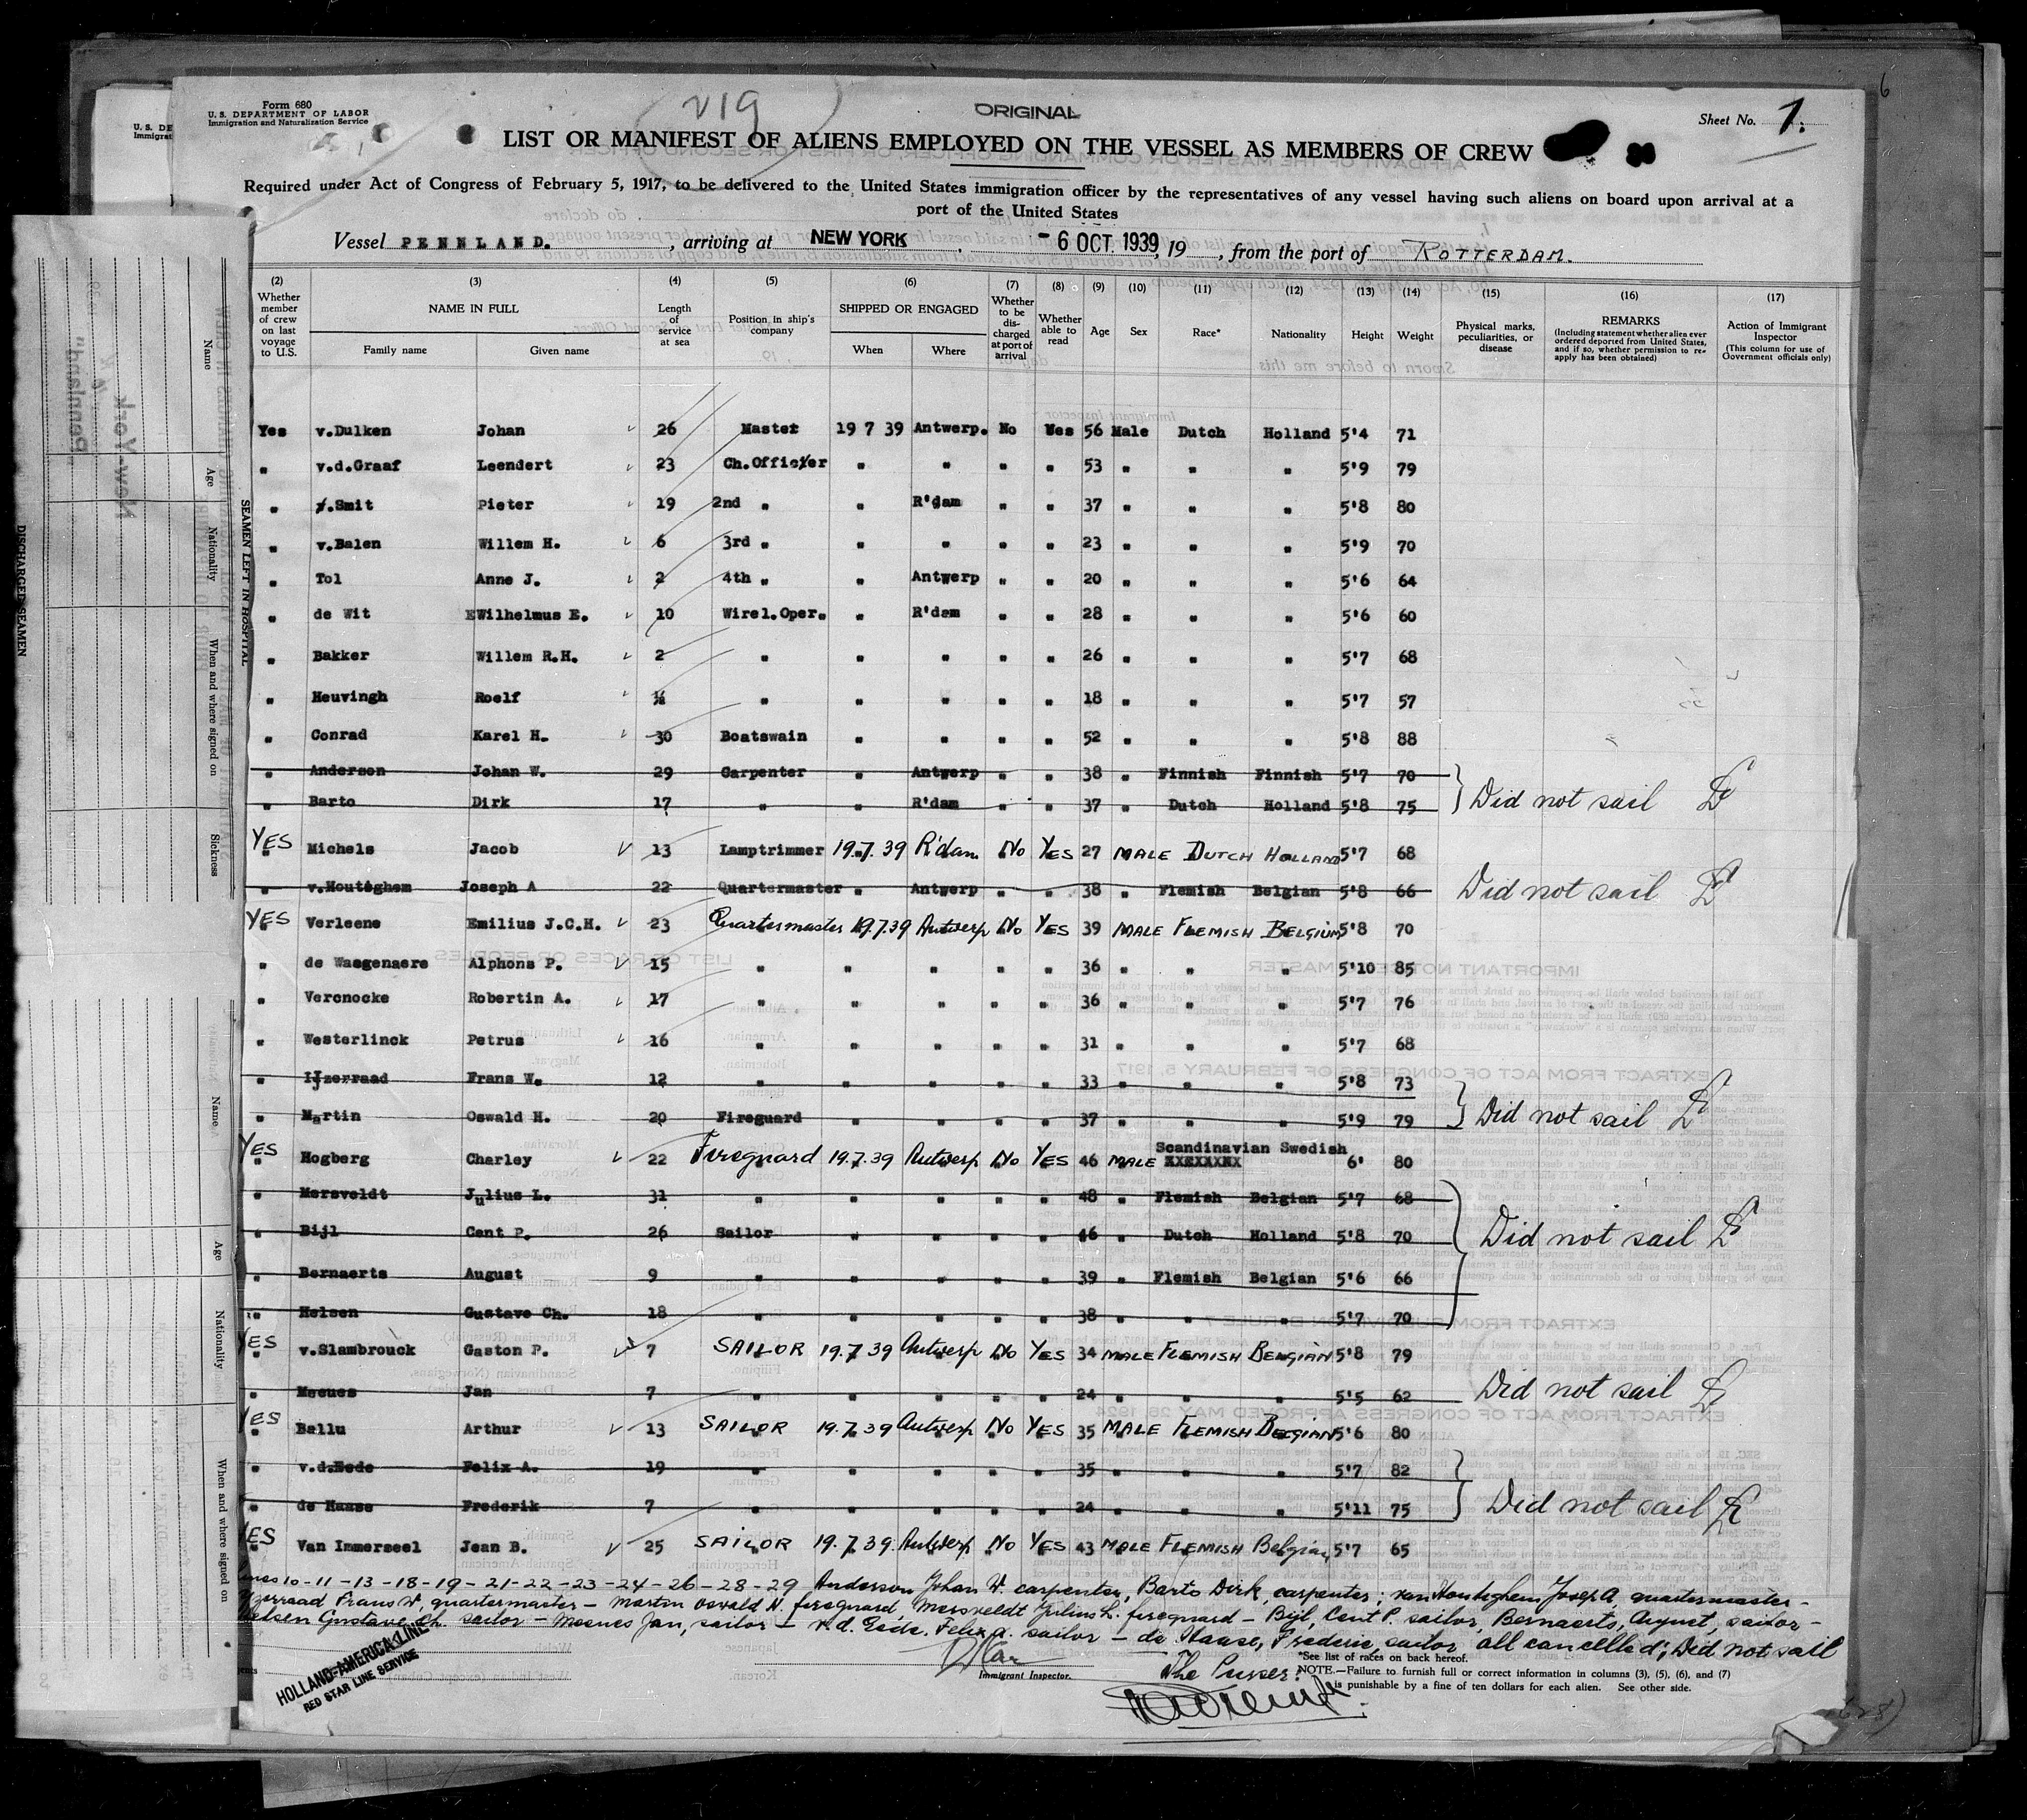 Form 680
U. S. DEPARTMENT OF LABOR
Immigration and Naturalization Service
219
ORIGINAL
Sheet No. 1.
LIST OR MANIFEST OF ALIENS EMPLOYED ON THE VESSEL AS MEMBERS OF CREW
Required under Act of Congress of February 5, 1917, to be delivered to the United States immigration officer by the representatives of any vessel having such aliens on board upon arrival at a
port of the United States
Vessel PENNLAND. , arriving at NEW YORK - 6 OCT. 1939, 19 , from the port of ROTTERDAM.
(2) Whether member of crew on last voyage to U.S.
(3) NAME IN FULL Family name Given name
(4) Length of service at sea
(5) Position in ship's company
(6) SHIPPED OR ENGAGED When Where
(7) Whether to be discharged at port of arrival
(8) Whether able to read
(9) Age
(10) Sex
(11) Race*
(12) Nationality
(13) Height
(14) Weight
(15) Physical marks, peculiarities, or disease
(16) REMARKS (Including statement whether alien ever ordered deported from United States, and if so, whether permission to reapply has been obtained)
(17) Action of Immigrant Inspector (This column for use of Government officials only)
Yes v.Dulken Johan 26 Master 19 7 39 Antwerp. No Yes 56 Male Dutch Holland 5'4 71
" v.d.Graaf Leendert 23 Ch.Officer " " " " 53 " " " 5'9 79
" Smit Pieter 19 2nd " " R'dam " " 37 " " " 5'8 80
" v.Balen Willem H. 6 3rd " " " " " 23 " " " 5'9 70
" Tol Anne J. 2 4th " " Antwerp " " 20 " " " 5'6 64
" de Wit Wilhelmus E. 10 Wirel.Oper. " R'dam " " 28 " " " 5'6 60
" Bakker Willem R.H. 2 " " " " " 26 " " " 5'7 68
" Heuvingh Roelf " " " " " 18 " " " 5'7 57
" Conrad Karel H. 30 Boatswain " " " " 52 " " " 5'8 88
" Anderson Johan W. 29 Carpenter " Antwerp " " 38 " Finnish Finnish 5'7 70
" Barto Dirk 17 " " R'dam " " 37 " Dutch Holland 5'8 75 Did not sail
YES Michels Jacob 13 Lamptrimmer 19.7.39 R'dam No YES 27 MALE DUTCH HOLLAND 5'7 68
" v.Houteghem Joseph A 22 Quartermaster " Antwerp " " 38 " Flemish Belgian 5'8 66 Did not sail
YES Verleene Emilius J.C.H. 23 Quartermaster 19.7.39 Antwerp No YES 39 MALE FLEMISH BELGIUM 5'8 70
" de Waegenaere Alphons P. 15 " " " " " 36 " " " 5'10 85
" Vercnocke Robertin A. 17 " " " " " 36 " " " 5'7 76
" Westerlinck Petrus 16 " " " " " 31 " " " 5'7 68
" IJzerraad Frans W. 12 " " " " " 33 " " " 5'8 73
" Martin Oswald H. 20 Fireguard " " " " 37 " " " 5'9 79 Did not sail
YES Hogberg Charley 22 Fireguard 19.7.39 Antwerp No YES 46 MALE Scandinavian Swedish 6' 80
" Mersveldt Julius L. 31 " " " " " 48 " Flemish Belgian 5'7 68
" Bijl Cent P. 26 Sailor " " " " 46 " Dutch Holland 5'8 70 Did not sail
" Bernaerts August 9 " " " " " 39 " Flemish Belgian 5'6 66
" Helsen Gustave Ch. 18 " " " " " 38 " " " 5'7 70
YES v.Slambrouck Gaston P. 7 SAILOR 19.7.39 Antwerp No YES 34 MALE FLEMISH BELGIAN 5'8 79
" Meeues Jan 7 " " " " " 24 " " " 5'5 62 Did not sail
YES Ballu Arthur 13 SAILOR 19.7.39 Antwerp No YES 35 MALE FLEMISH BELGIAN 5'6 80
" v.d.Eede Felix A. 19 " " " " " 35 " " " 5'7 82
" de Haase Frederik 7 " " " " " 24 " " " 5'11 75 Did not sail
YES Van Immerseel Jean B. 25 SAILOR 19.7.39. Antwerp No YES 43 MALE FLEMISH Belgian 5'7 65
Lines 10-11-13-18-19-21-22-23-24-26-28-29 Anderson Johan W. carpenter, Barto Dirk, carpenter; van Houteghem Josef A. quartermaster-
Yzerraad Frans W, quartermaster - Martin Oswald H. fireguard, Mersveldt Julius L. fireguard - Bijl, Cent P. sailor, Bernaerts, August, sailor -
Helsen Gustave Ch. sailor - Meeues Jan, sailor - v.d. Eede, Felix A. sailor - de Haase, Frederic, sailor all cancelled; Did not sail
HOLLAND-AMERICA LINE
RED STAR LINE SERVICE
Immigrant Inspector.
The Purser:
*See list of races on back hereof.
NOTE.—Failure to furnish full or correct information in columns (3), (5), (6), and (7)
is punishable by a fine of ten dollars for each alien. See other side.
SEAMEN LEFT IN HOSPITAL
DISCHARGED SEAMEN
Name
Age
Nationality
When and where signed on
Sickness
Name
Age
Nationality
When and where signed on
"Pennland"
New-York